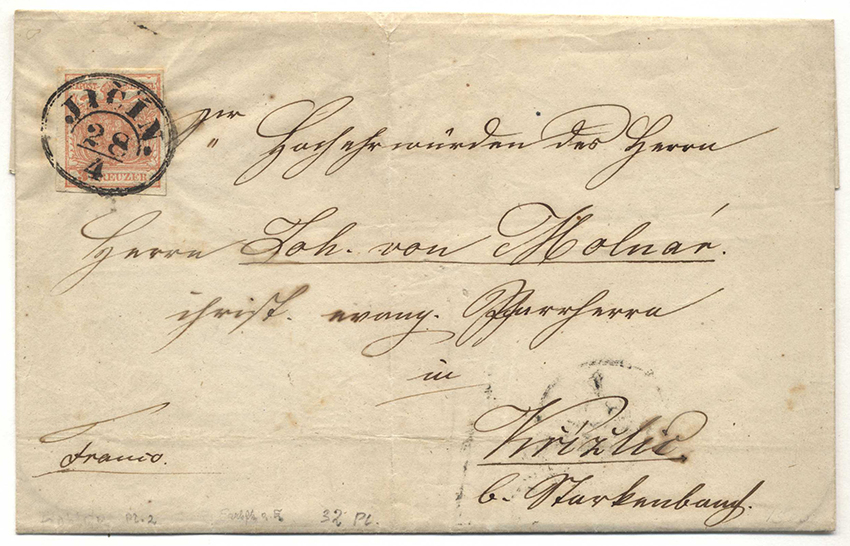 JIČIN.
28
4
KREUZER
Sr Hochehrwürden des Herrn
Herrn Joh. von Molnár.
christ. evang. Pfarrherrn
in
Křižlic.
b. Starkenbach.
Franco.
Pl. 2
32 Pl.